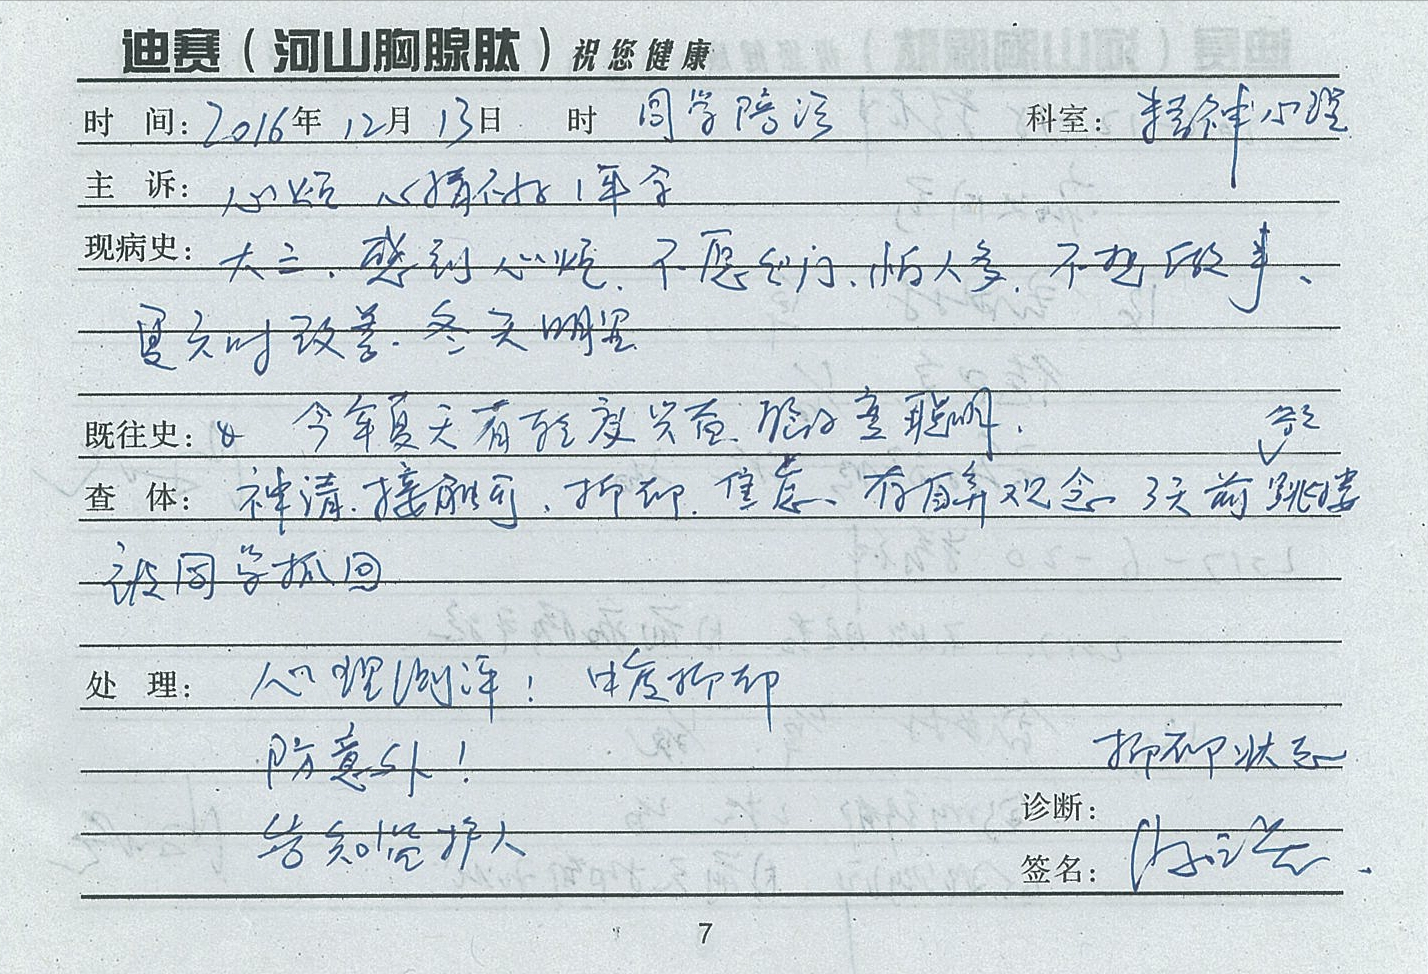 迪赛（河山胸腺肽）祝您健康
时 间：2016年 12月 13日 时 同学陪诊 科室：精神心理
主 诉：心烦 心情不好 1年余
现病史：大三、感到心烦、不愿出门、怕人多、不想做事、
夏天时改善、冬天明显
既往史： 今年夏天有轻度兴奋、脑子变聪明。
查 体：神清、接触可、抑郁、焦虑、存自弃观念 3天前跳楼
被同学抓回
处 理：心理测评！ 中度抑郁
防意外！
抑郁状态
诊断：
告知监护人
签名：
7